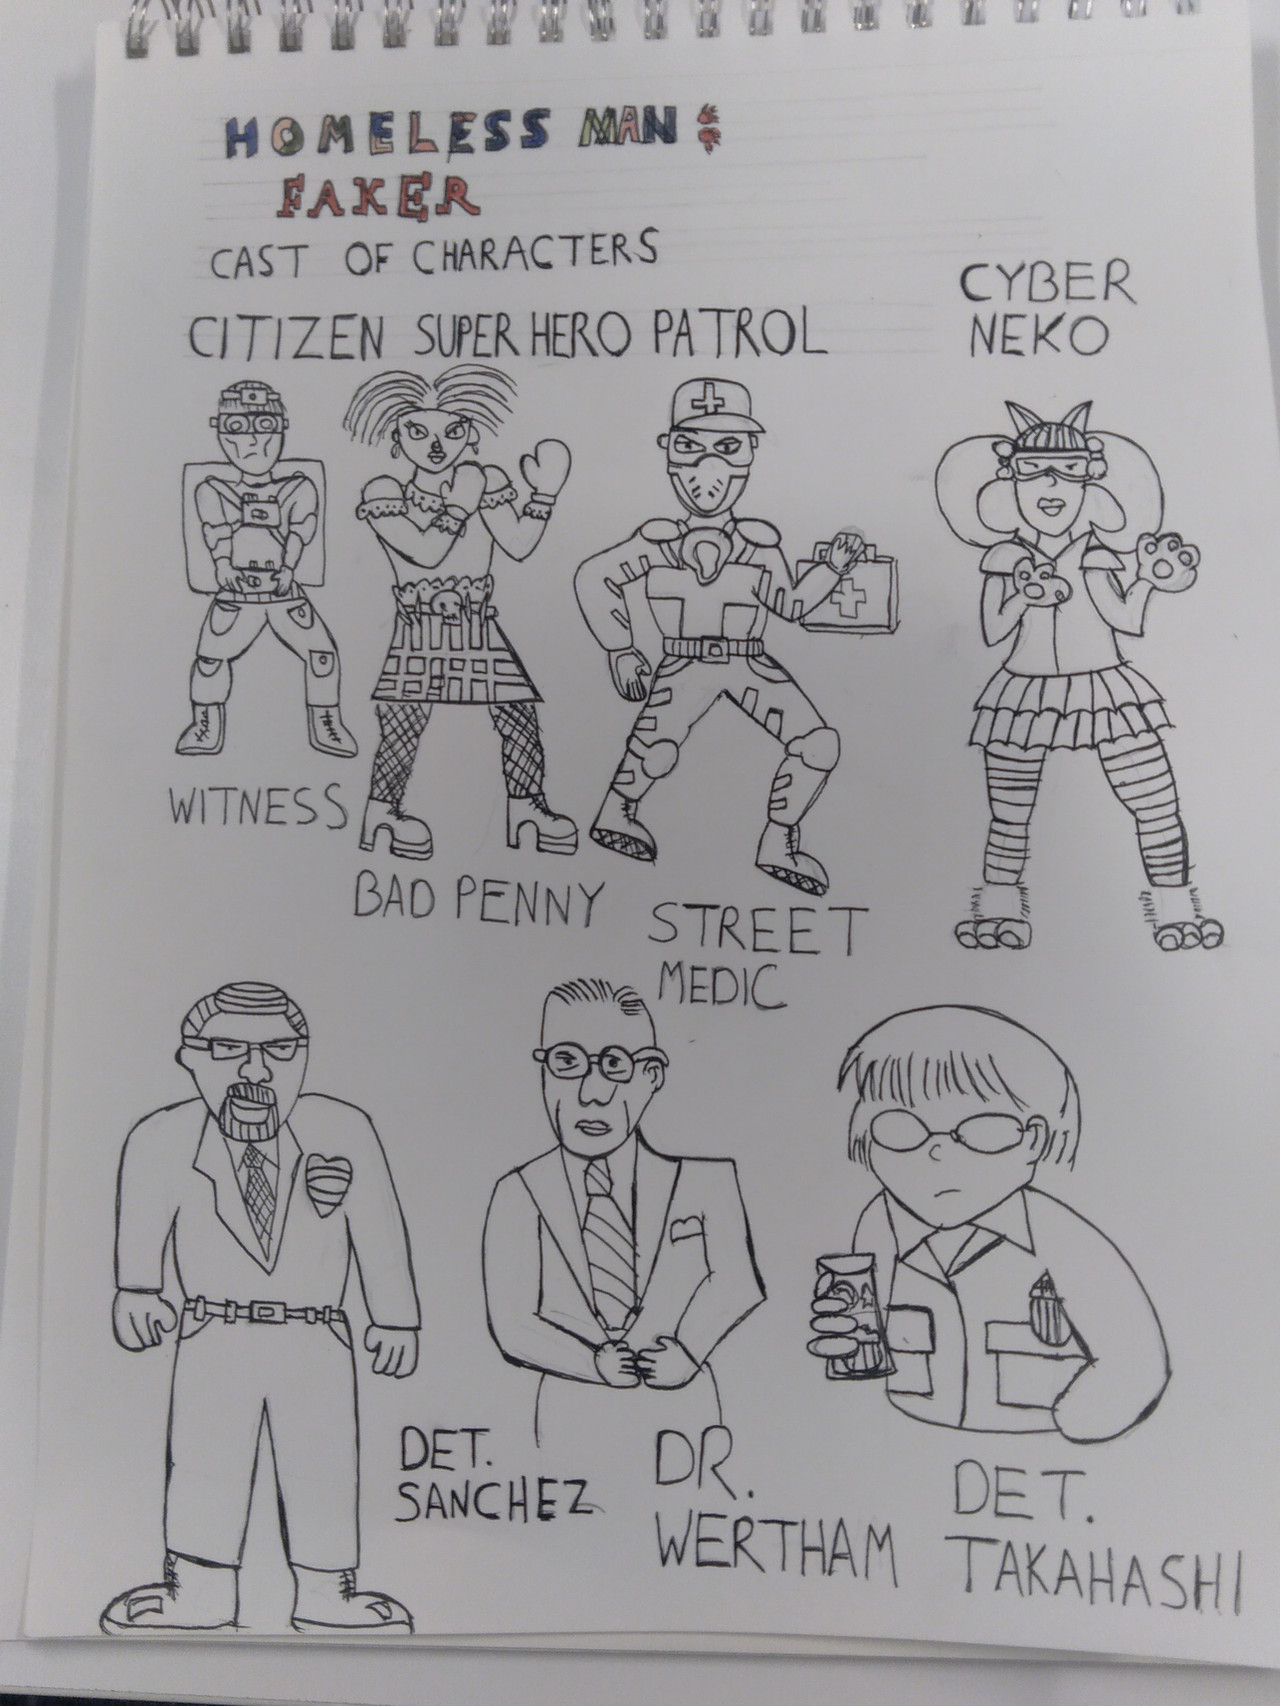 HOMELESS MAN:
FAKER
CAST OF CHARACTERS
CITIZEN SUPER HERO PATROL
CYBER
NEKO
WITNESS
BAD PENNY
STREET
MEDIC
DET.
SANCHEZ
DR.
WERTHAM
DET.
TAKAHASHI